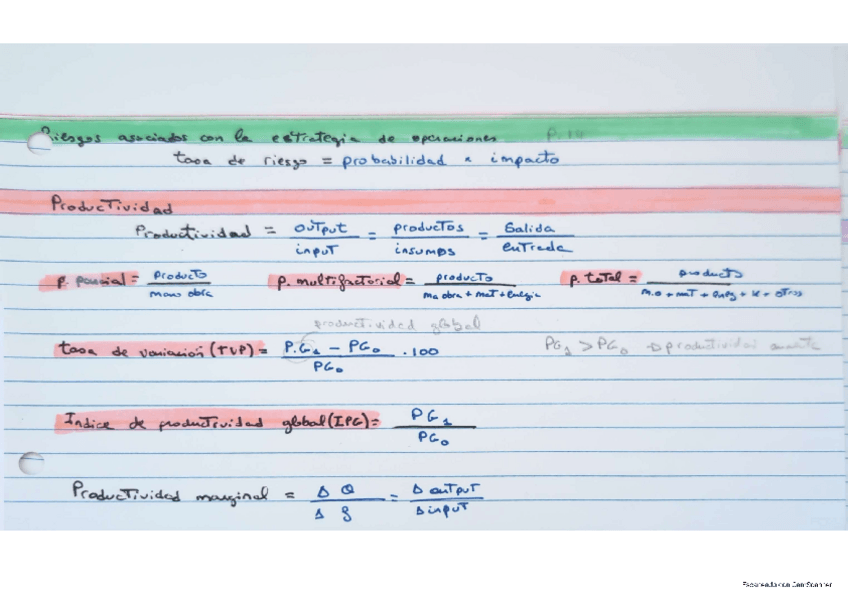 Riesgos asociados con la estrategia de operaciones P. 14
tasa de riesgo = probabilidad × impacto
Productividad
Productividad = output / input = productos / insumos = Salida / entrada
p. parcial = producto / mano obra p. multifactorial = producto / ma obra + mat + energia p. total = producto / m.o + mat + energ + K + otros
productividad global
tasa de variación (TVP) = P.G₁ - PG₀ / PG₀ · 100 PG₁ > PG₀ → productividad aumenta
Indice de productividad global (IPG) = PG₁ / PG₀
Productividad marginal = Δ Q / Δ = Δ output / Δ input
Escaneado con CamScanner